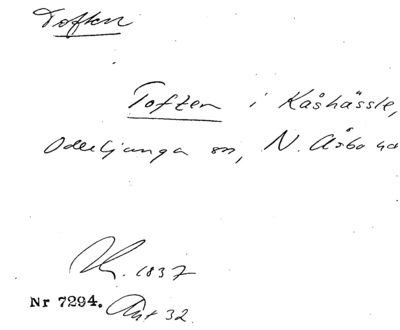 Toften
Toften i Kåshässle,
Oderljunga sn, N. Åsbo hd
Kr. 1837
Nr 7294. Ant 32